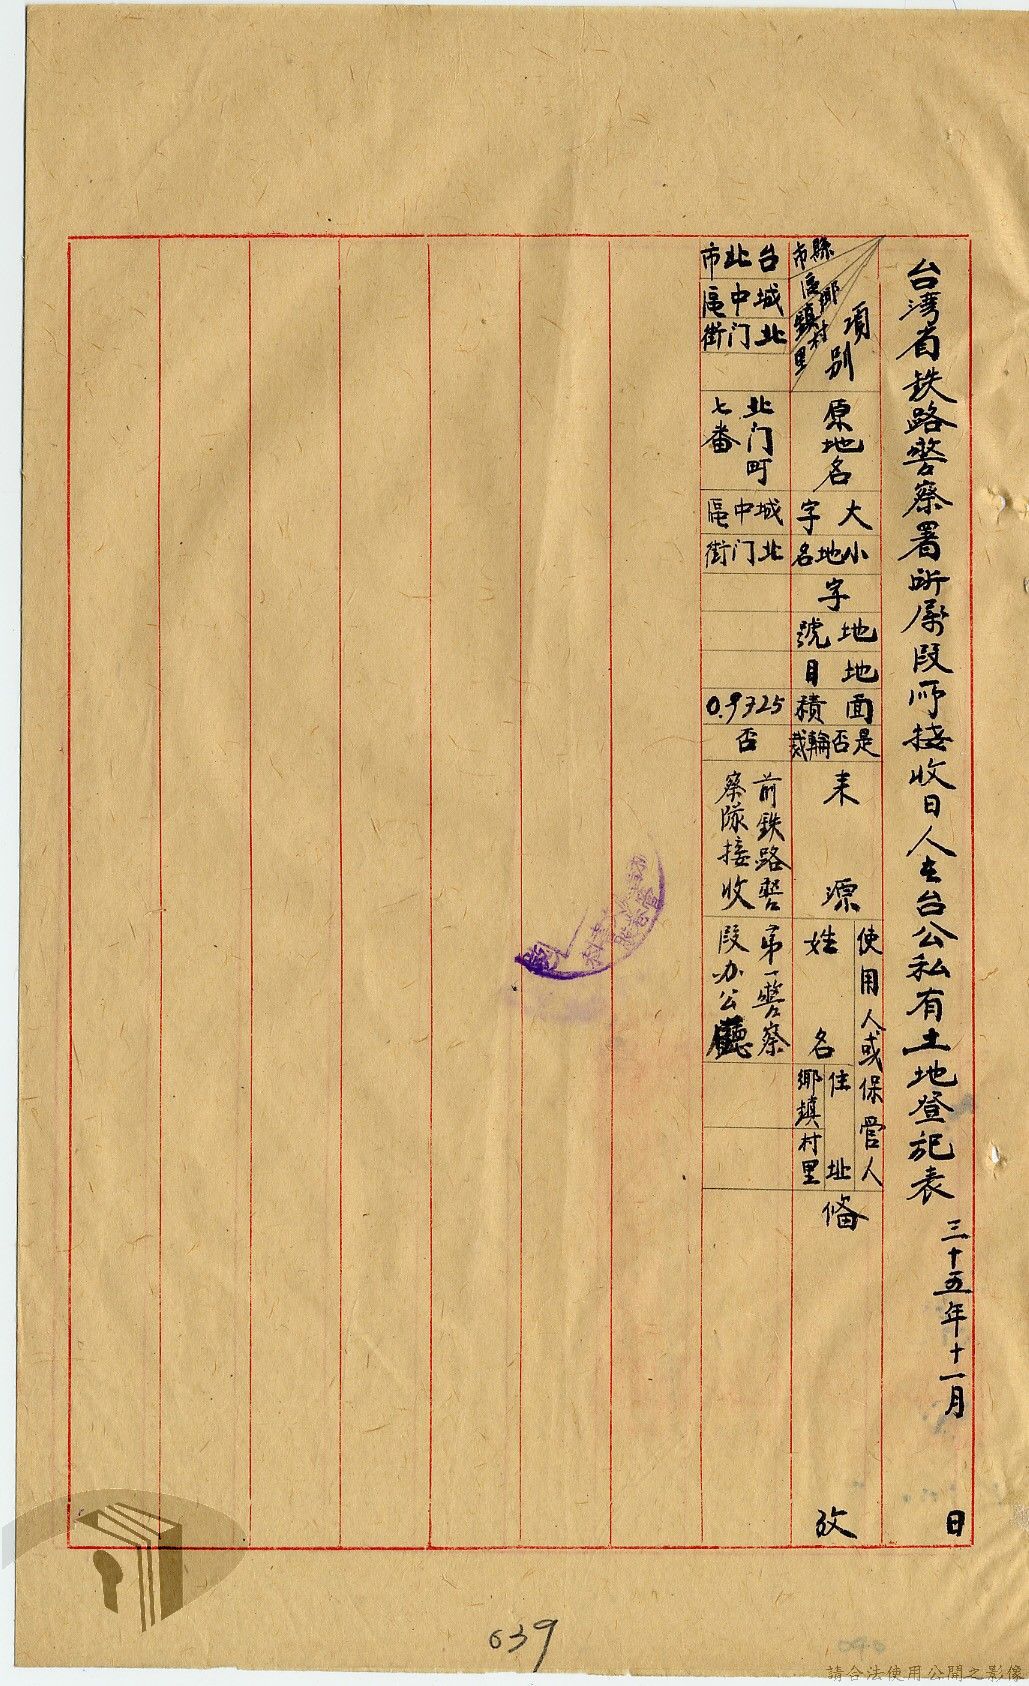 台湾省鉄路警察署所属段所接收日人在台公私有土地登記表 三十五年十一月 日
項別
縣市
鄉區鎮
村里
原地名
大字
小地名
字
地號
地目
面積
是否輪裁
来源
使用人或保管人
姓名
住址
鄉鎮
村里
俻攷
台北市
城中區
北门街
北门町
七番
城中區
北门街
0.9325
否
前鉄路警
察隊接收
第一警察
段办公廳
639
請合法使用公開之影像